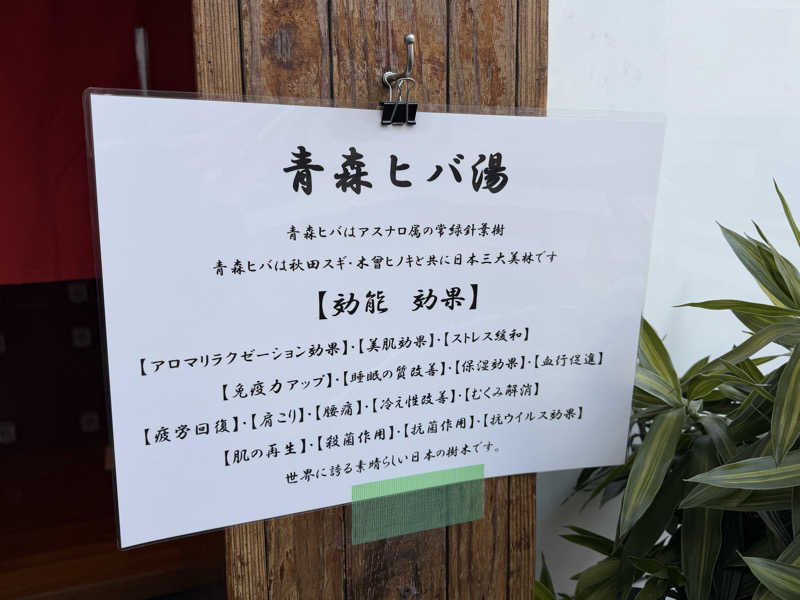 青森ヒバ湯
青森ヒバはアスナロ属の常緑針葉樹
青森ヒバは秋田スギ・木曾ヒノキと共に日本三大美林です
【効能 効果】
【アロマリラクゼーション効果】・【美肌効果】・【ストレス緩和】
【免疫力アップ】・【睡眠の質改善】・【保湿効果】・【血行促進】
【疲労回復】・【肩こり】・【腰痛】・【冷え性改善】・【むくみ解消】
【肌の再生】・【殺菌作用】・【抗菌作用】・【抗ウイルス効果】
世界に誇る素晴らしい日本の樹木です。